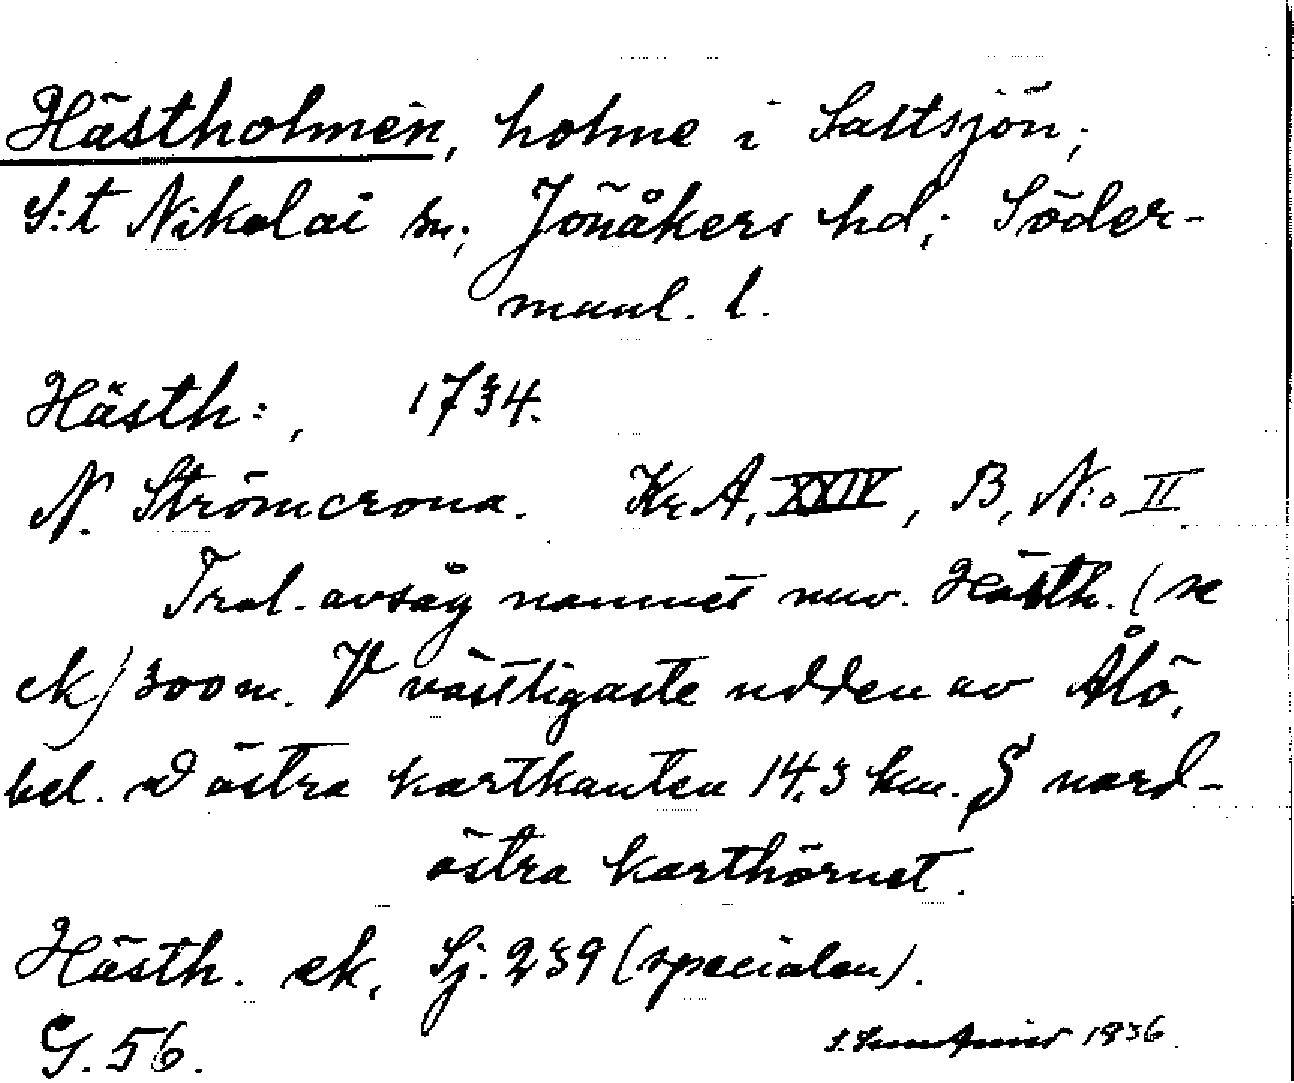 Hästholmen, holme i Saltsjön;
S:t Nikolai sn; Jönåkers hd; Söder-
manl. l.
Hästh:, 1734.
N. Strömcrona. Kr.A. XXIV, B, N:o II
Trol. avsåg namnet nuv. Hästh. (se
ek) 300 m. V västligaste udden av Ålö,
bel. vid östra kartkanten 14,3 km. S nord-
östra karthörnet.
Hästh. ek. Sj. 239 (specialen).
G. 56. 1936